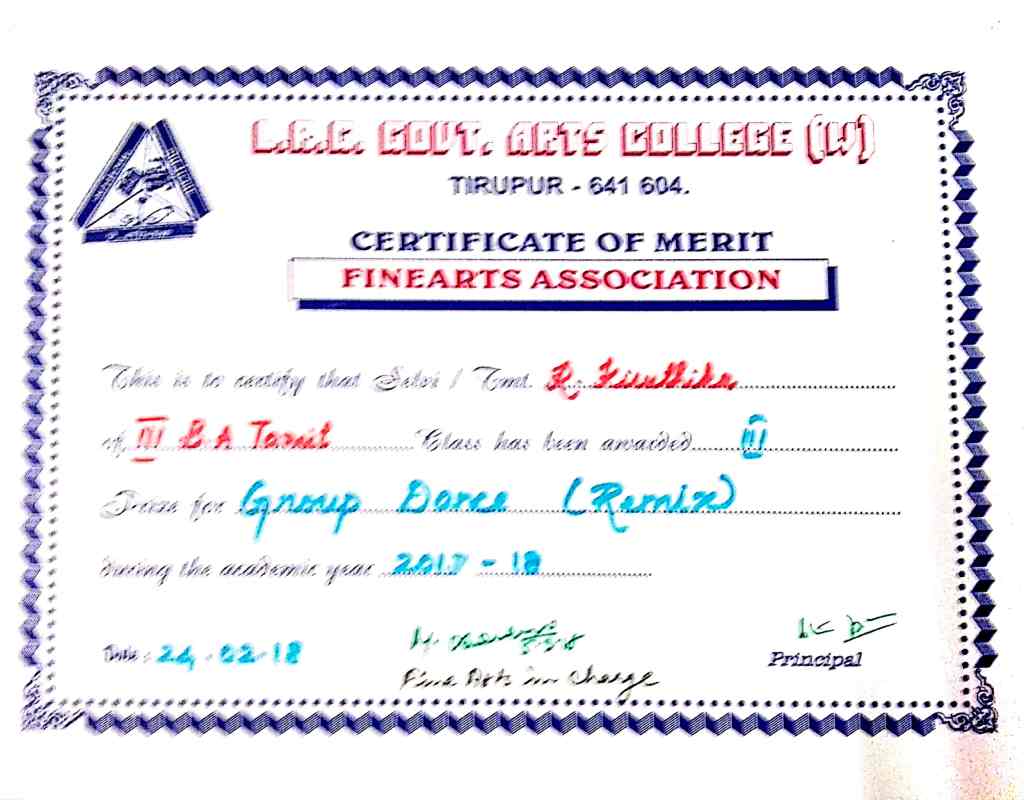 L.R.G. GOVT. ARTS COLLEGE (W)
TIRUPUR - 641 604.
CERTIFICATE OF MERIT
FINEARTS ASSOCIATION
This is to certify that Selvi / Tmt. R.
of III B.A Tamil Class has been awarded III
Prize for Group Dance (Remix)
during the academic year 2017 - 18
Date: 24.02.18
Fine Arts in charge
Principal